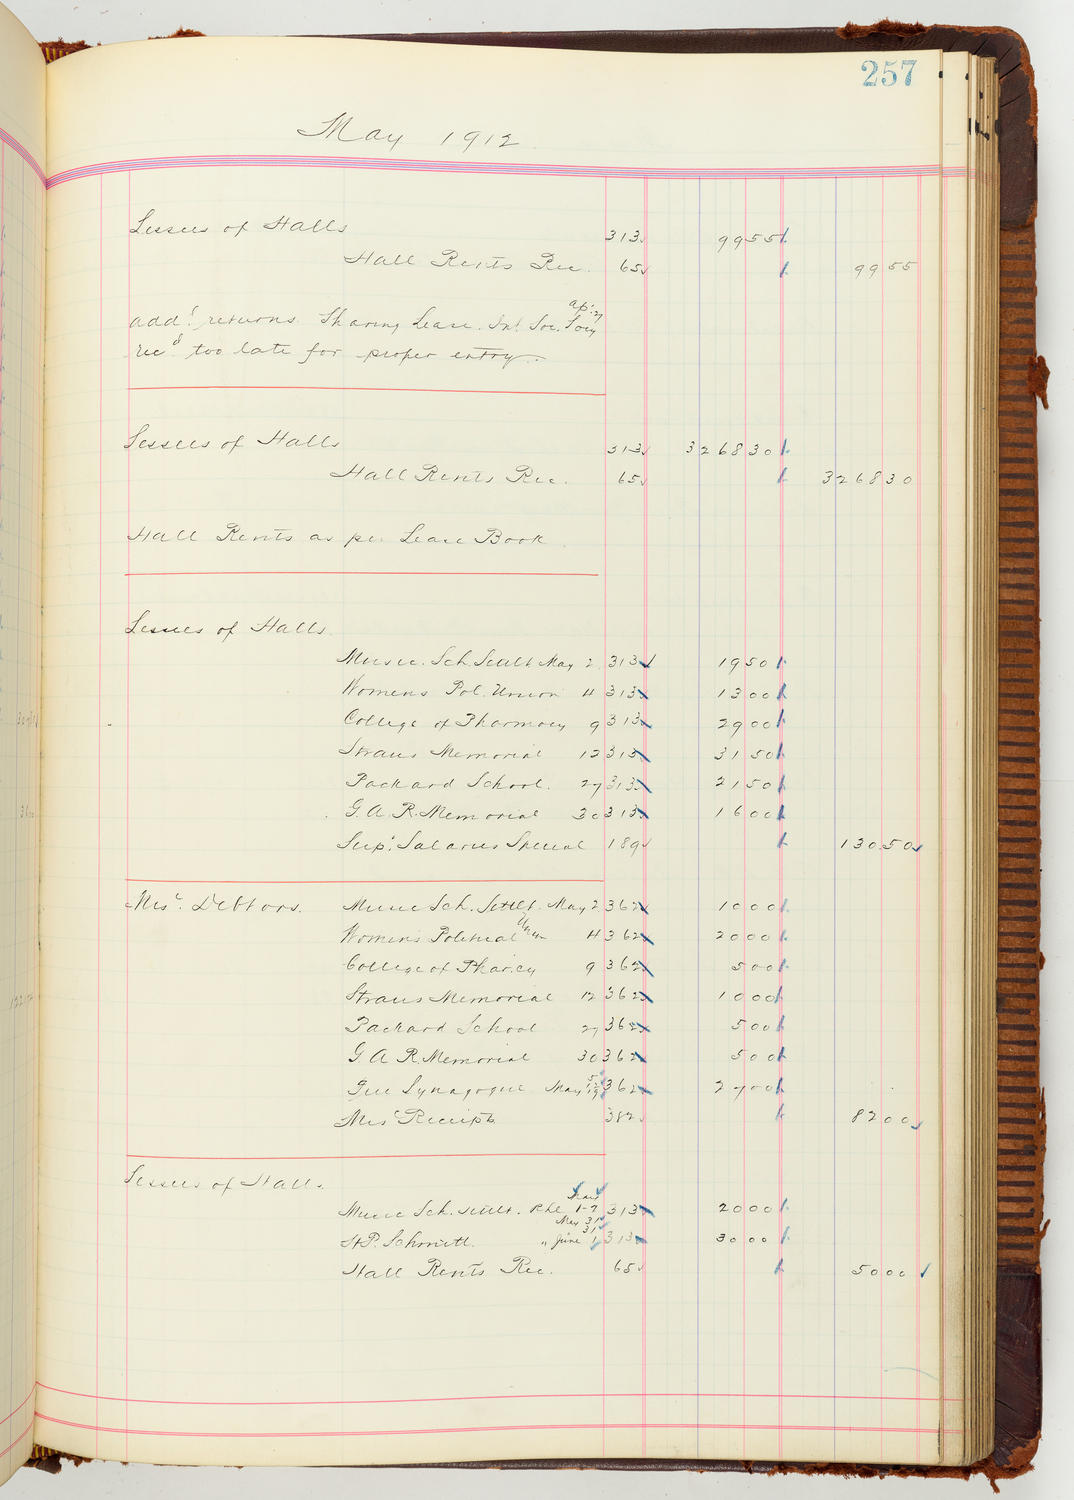 257
May 1912
Lessees of Halls 313 9955
Hall Rents Rec. 65 9955
ap. 27
add'l returns Sharing Lease Int. Soc. Socy
rec'd too late for proper entry.
Lessees of Halls 313 326830
Hall Rents Rec. 65 326830
Hall Rents as per Lease Book
Lessees of Halls
Music Sch. Settlt May 2 313 1950
Womens Pol. Union 4 313 1300
College of Pharmacy 9 313 2900
Straus Memorial 12 313 3150
Packard School. 27 313 2150
G. A. R. Memorial 30 313 1600
Sup't Salaries Special 189 13050
Mis'c. Debtors. Music Sch. Settlt. May 2 362 1000
Womens Political Union 4 362 2000
College of Phar'cy 9 362 500
Straus Memorial 12 362 1000
Packard School 27 362 500
G A R. Memorial 30 362 500
Free Synagogue May 5 12 19 362 2700
Mis'c Receipts 382 8200
Lessees of Halls.
Music Sch. Settlt. Rhl 1-2 313 2000
May 31
31
H. P. Schmitt. " June 1 313 3000
Hall Rents Rec. 65 5000